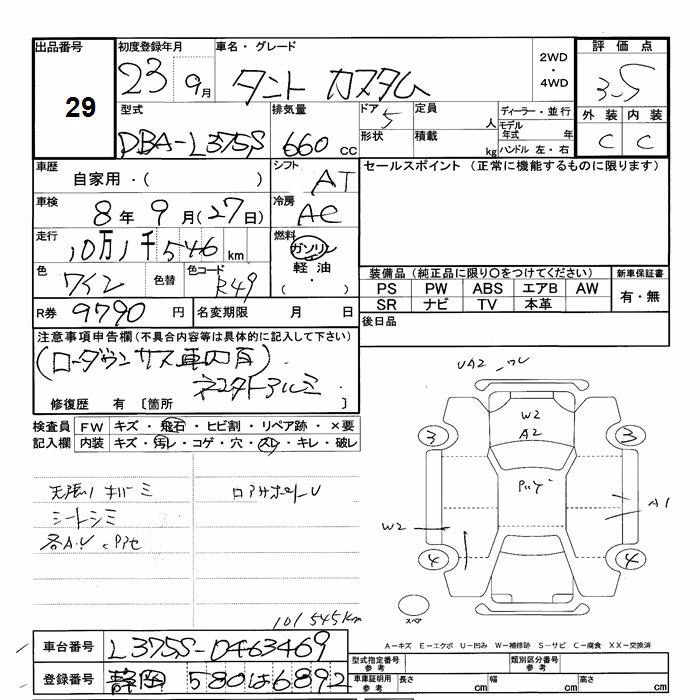 出品番号 初度登録年月 車名・グレード 2WD・4WD 評価点
29 23 9月 タント カスタム 3.5
型式 排気量 ドア 5 定員 人 ディーラー・並行 外装 内装
DBA-L375S 660 cc 形状 積載 kg モデル年式 年 ハンドル 左・右 C C
車歴 自家用・( ) シフト AT セールスポイント (正常に機能するものに限ります)
車検 8年 9月(27日) 冷房 AC
走行 10万1千546km 燃料 ガソリン 軽油 ( ・ )
色 ワイン 色替 色コード R49 装備品 (純正品に限り〇をつけてください) 新車保証書
PS PW ABS エアB AW 有・無
SR ナビ TV 本革
R券 9790 円 名変期限 月 日 後日品
注意事項申告欄(不具合内容等は具体的に記入して下さい)
(ローダウンサス車内有)
ネスタドアルミ
修復歴 有 [箇所 ]
検査員記入欄 FW キズ・飛石・ヒビ割・リペア跡・×要
内装 キズ・汚レ・コゲ・穴・スレ・キレ・破レ
UA2 ワレ
W2
A2
3 3
天張り ロアサポートU
シートシミ
各A・U
A1
W2
4 4
スペア
101545km
A-キズ E-エクボ U-凹み W-補修跡 S-サビ C-腐食 XX-交換済
車台番号 L375S-0463469 型式指定番号 参考 類別区分番号 参考
登録番号 静岡 580 は 6892 車庫証明用 参考 長さ cm 幅 cm 高さ cm